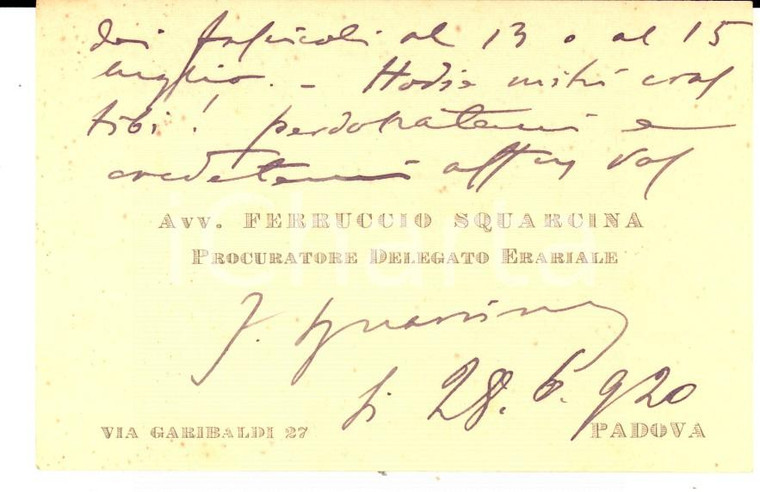 dei fascicoli al 13 o al 15
luglio. - Hodie mihi cras
tibi! perdonatemi e
credetemi aff.mo Vos
Avv. FERRUCCIO SQUARCINA
PROCURATORE DELEGATO ERARIALE
F. Squarcina
li 28. 6. 920
VIA GARIBALDI 27
PADOVA
iCharta